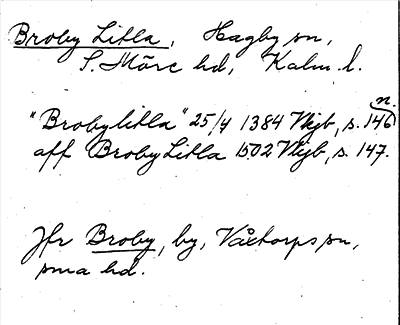 Broby Litla, Hagby sn,
S. Möre hd, Kalm. l.
n.
"Brobylitla" 25/4 1384 Vkjb, s. 146
aff Broby Litla 1502 Vkjb, s. 147.
Jfr Broby, by, Växtorps sn,
sma hd.